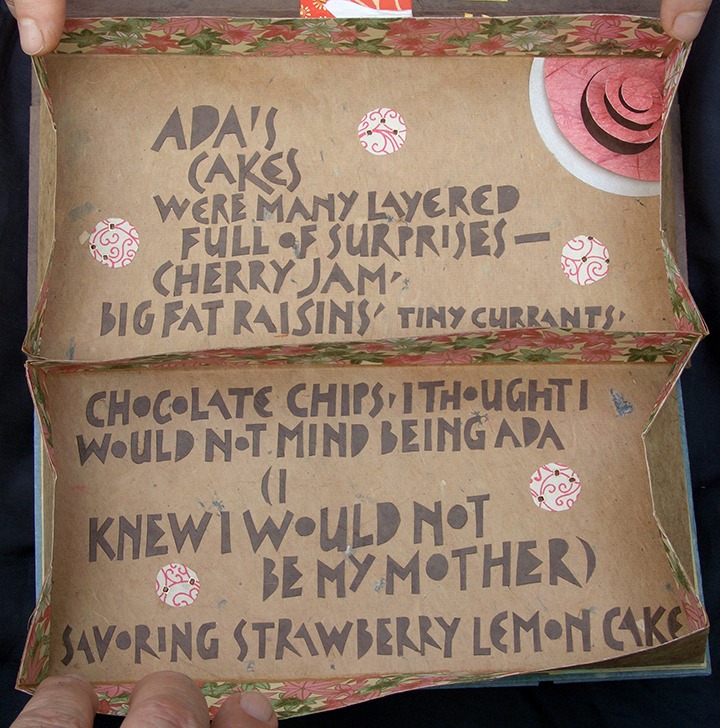 ADA'S
CAKES
WERE MANY LAYERED
FULL OF SURPRISES —
CHERRY JAM,
BIG FAT RAISINS, TINY CURRANTS,
CHOCOLATE CHIPS, I THOUGHT I
WOULD NOT MIND BEING ADA
(I
KNEW I WOULD NOT
BE MY MOTHER)
SAVORING STRAWBERRY LEMON CAKE